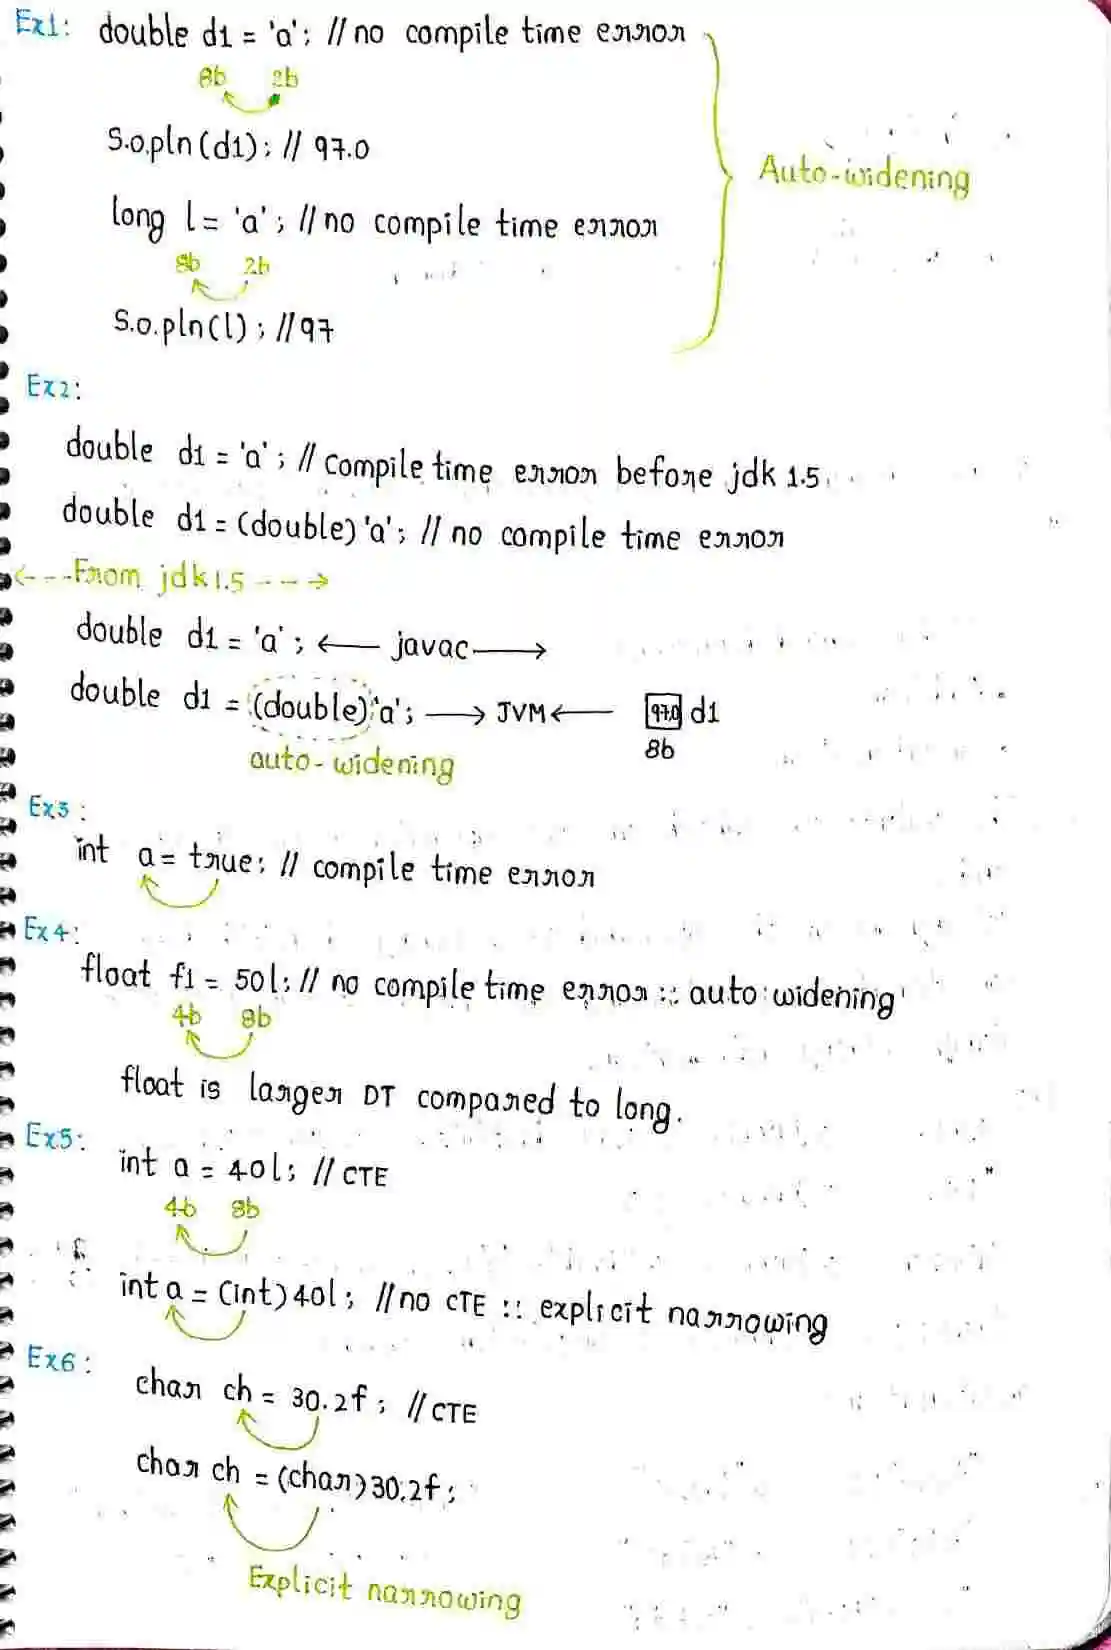 Ex1: double d1 = 'a'; // no compile time error
8b 2b
S.o.pln(d1); // 97.0
Auto-widening
long l = 'a'; // no compile time error
8b 2b
S.o.pln(l); // 97
Ex2:
double d1 = 'a'; // compile time error before jdk 1.5
double d1 = (double) 'a'; // no compile time error
<---From jdk1.5 --->
double d1 = 'a'; <—— javac ——>
double d1 = (double) 'a'; ——> JVM <—— 97.0 d1
auto-widening 8b
Ex3:
int a = true; // compile time error
Ex4:
float f1 = 50l; // no compile time error :: auto widening
4b 8b
float is larger DT compared to long.
Ex5:
int a = 40l; // CTE
4b 8b
int a = (int) 40l; // no CTE :: explicit narrowing
Ex6:
char ch = 30.2f; // CTE
char ch = (char) 30.2f;
Explicit narrowing